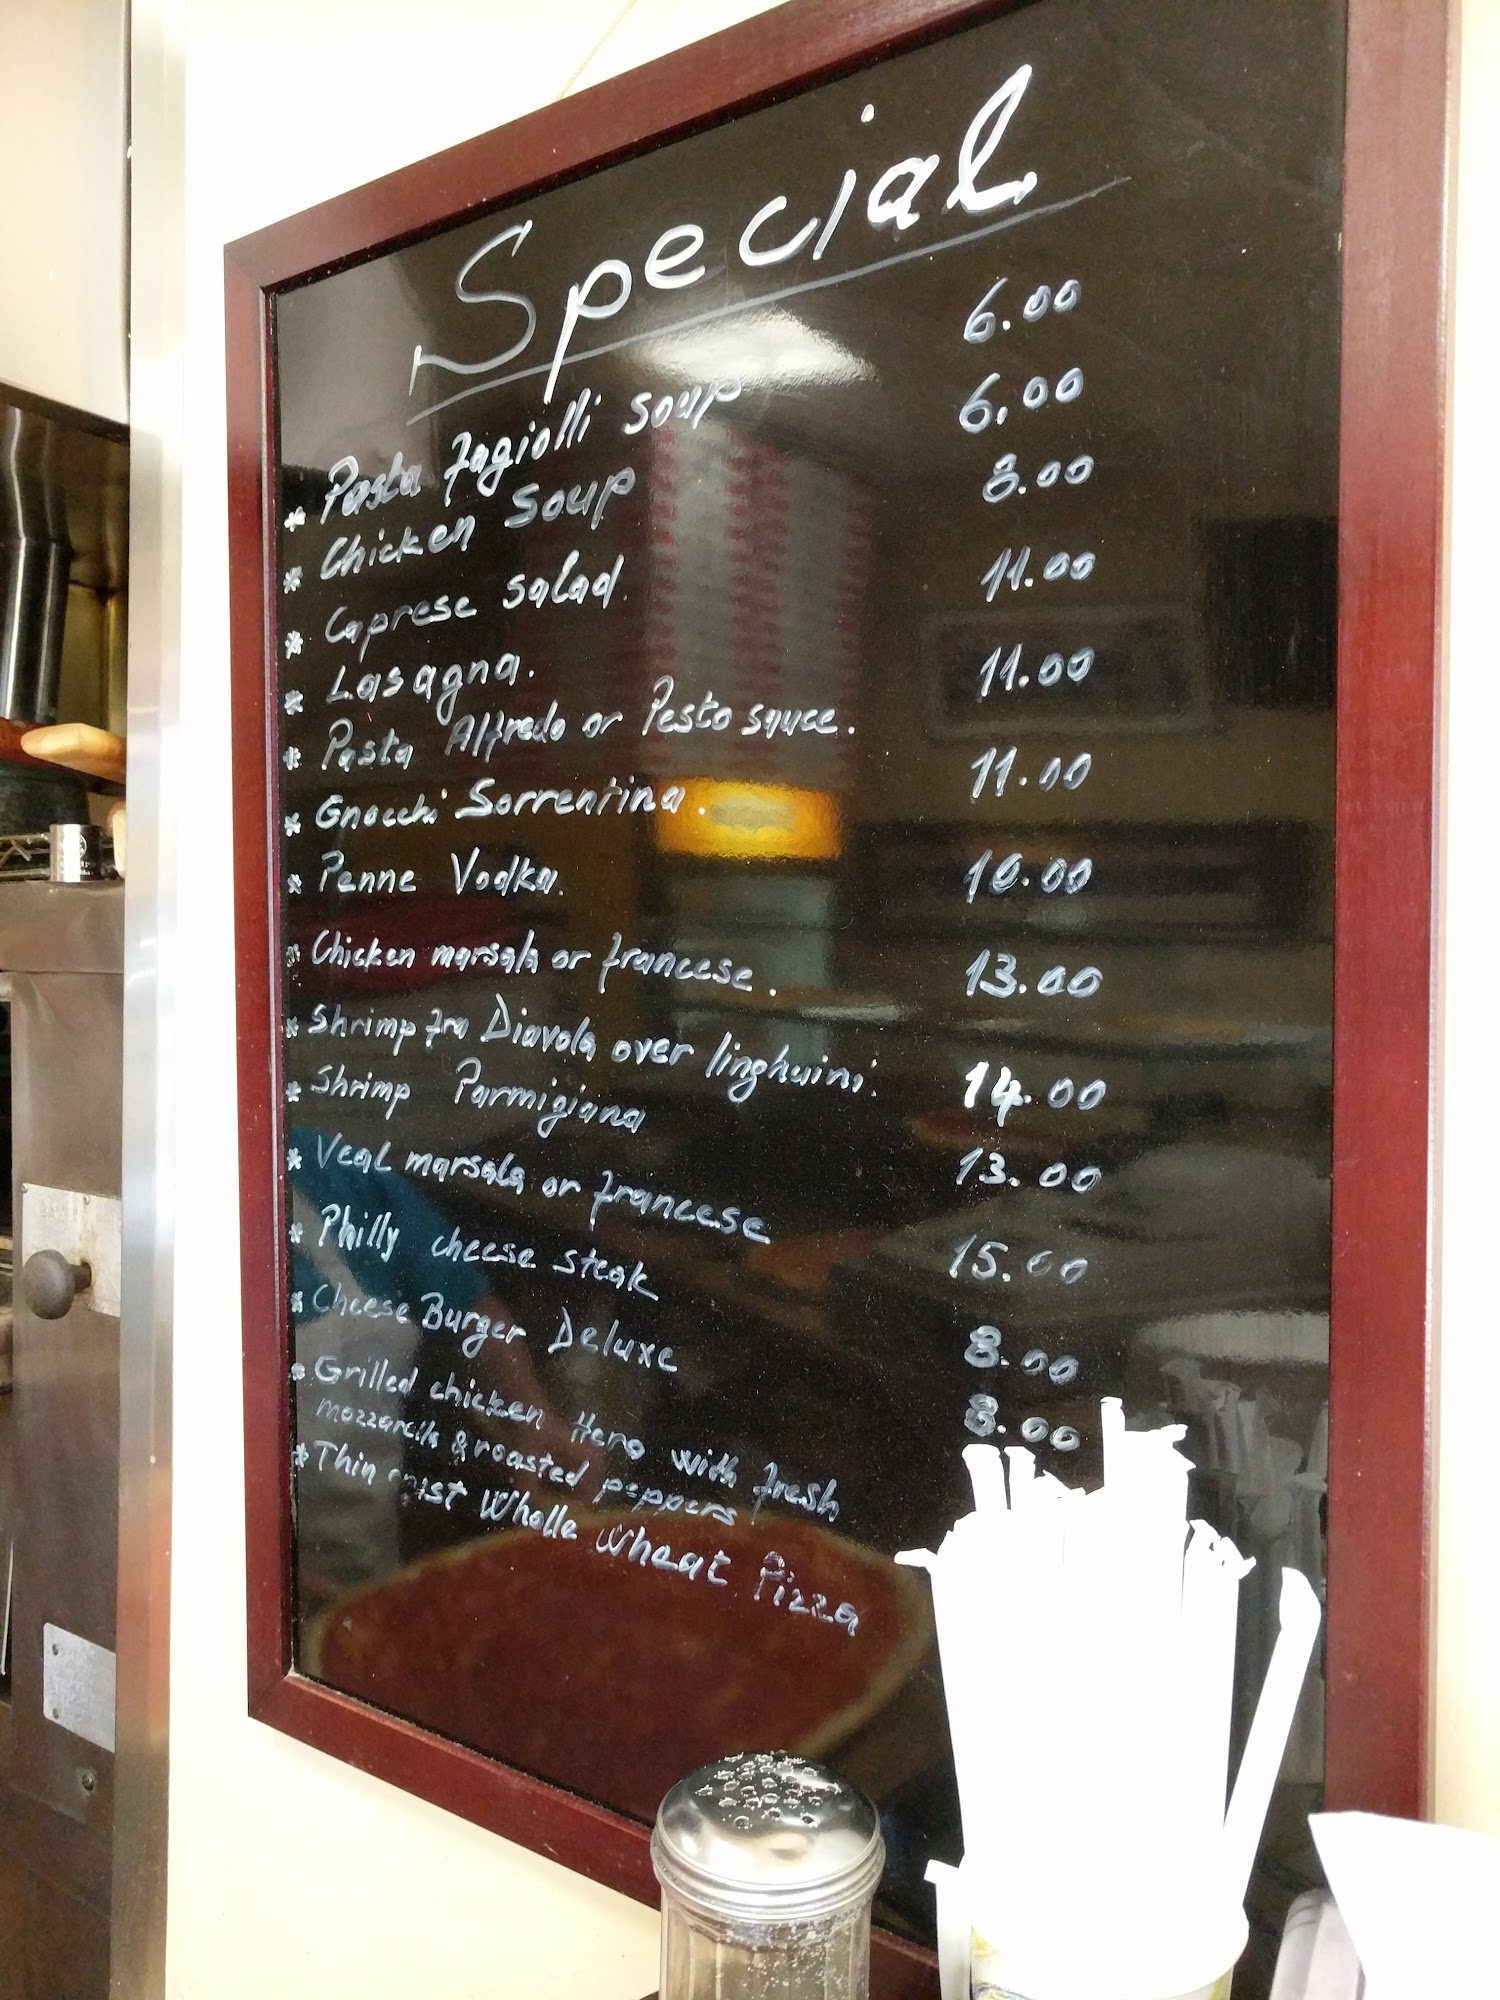 Special
* Pasta fagiolli soup 6.00
* Chicken soup 6.00
* Caprese salad. 8.00
* Lasagna. 11.00
* Pasta Alfredo or Pesto sauce. 11.00
* Gnocchi Sorrentina. 11.00
* Penne Vodka. 10.00
* Chicken marsala or francese. 13.00
* Shrimp fra Diavola over linghuini. 14.00
* Shrimp Parmigiana 13.00
* Veal marsala or francese 15.00
* Philly cheese steak 8.00
* Cheese Burger Deluxe 8.00
* Grilled chicken Hero with fresh
mozzarella & roasted peppers
* Thin Wholle Wheat Pizza